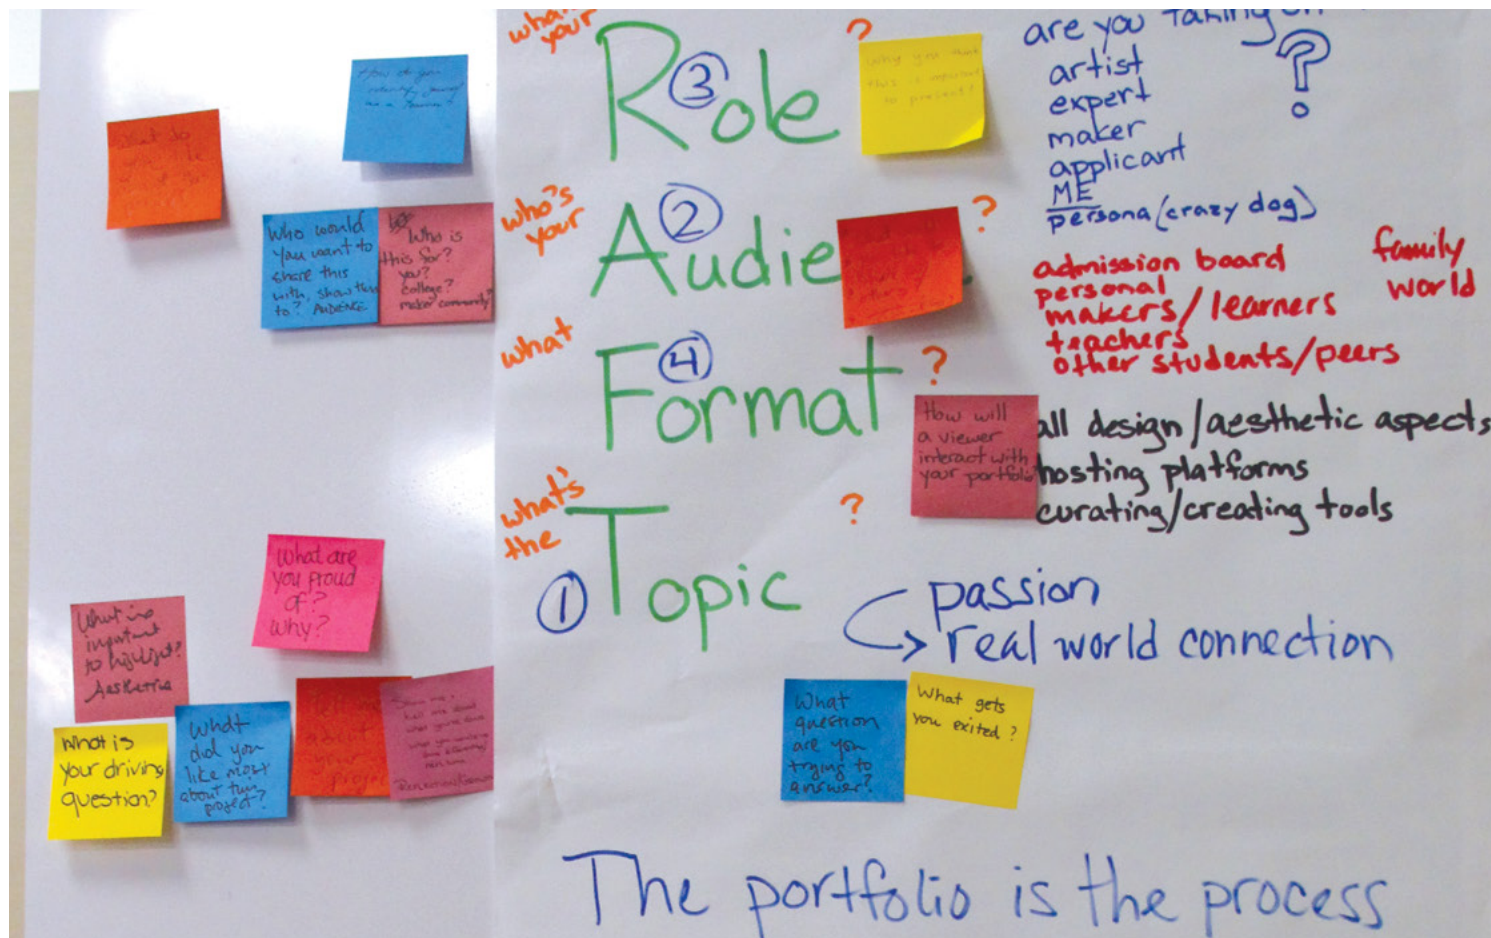 How do you
identify yourself
as a learner?
What do
Who would
you want to
share this
with, show this
to? AUDIENCE
Who is
this for?
you?
college?
maker community?
What are
you proud
of?
why?
What is
important
to highlight?
What is
your driving
question?
What
did you
like most
about this
project?
about
your
project
Show me &
tell me about
what you've done
your
Role ?
3
Why you think
this is important
to present?
are you taking on
?
artist
expert
maker
applicant
ME
persona (crazy dog)
who's
your
Audie
2
?
admission board
personal
makers/learners
teachers
other students/peers
family
world
what
Format ?
4
How will
a viewer
interact with
your portfolio
all design/aesthetic aspects
hosting platforms
curating/creating tools
what's
the
Topic ?
1
passion
real world connection
What
question
are you
trying to
answer?
What gets
you exited?
The portfolio is the process